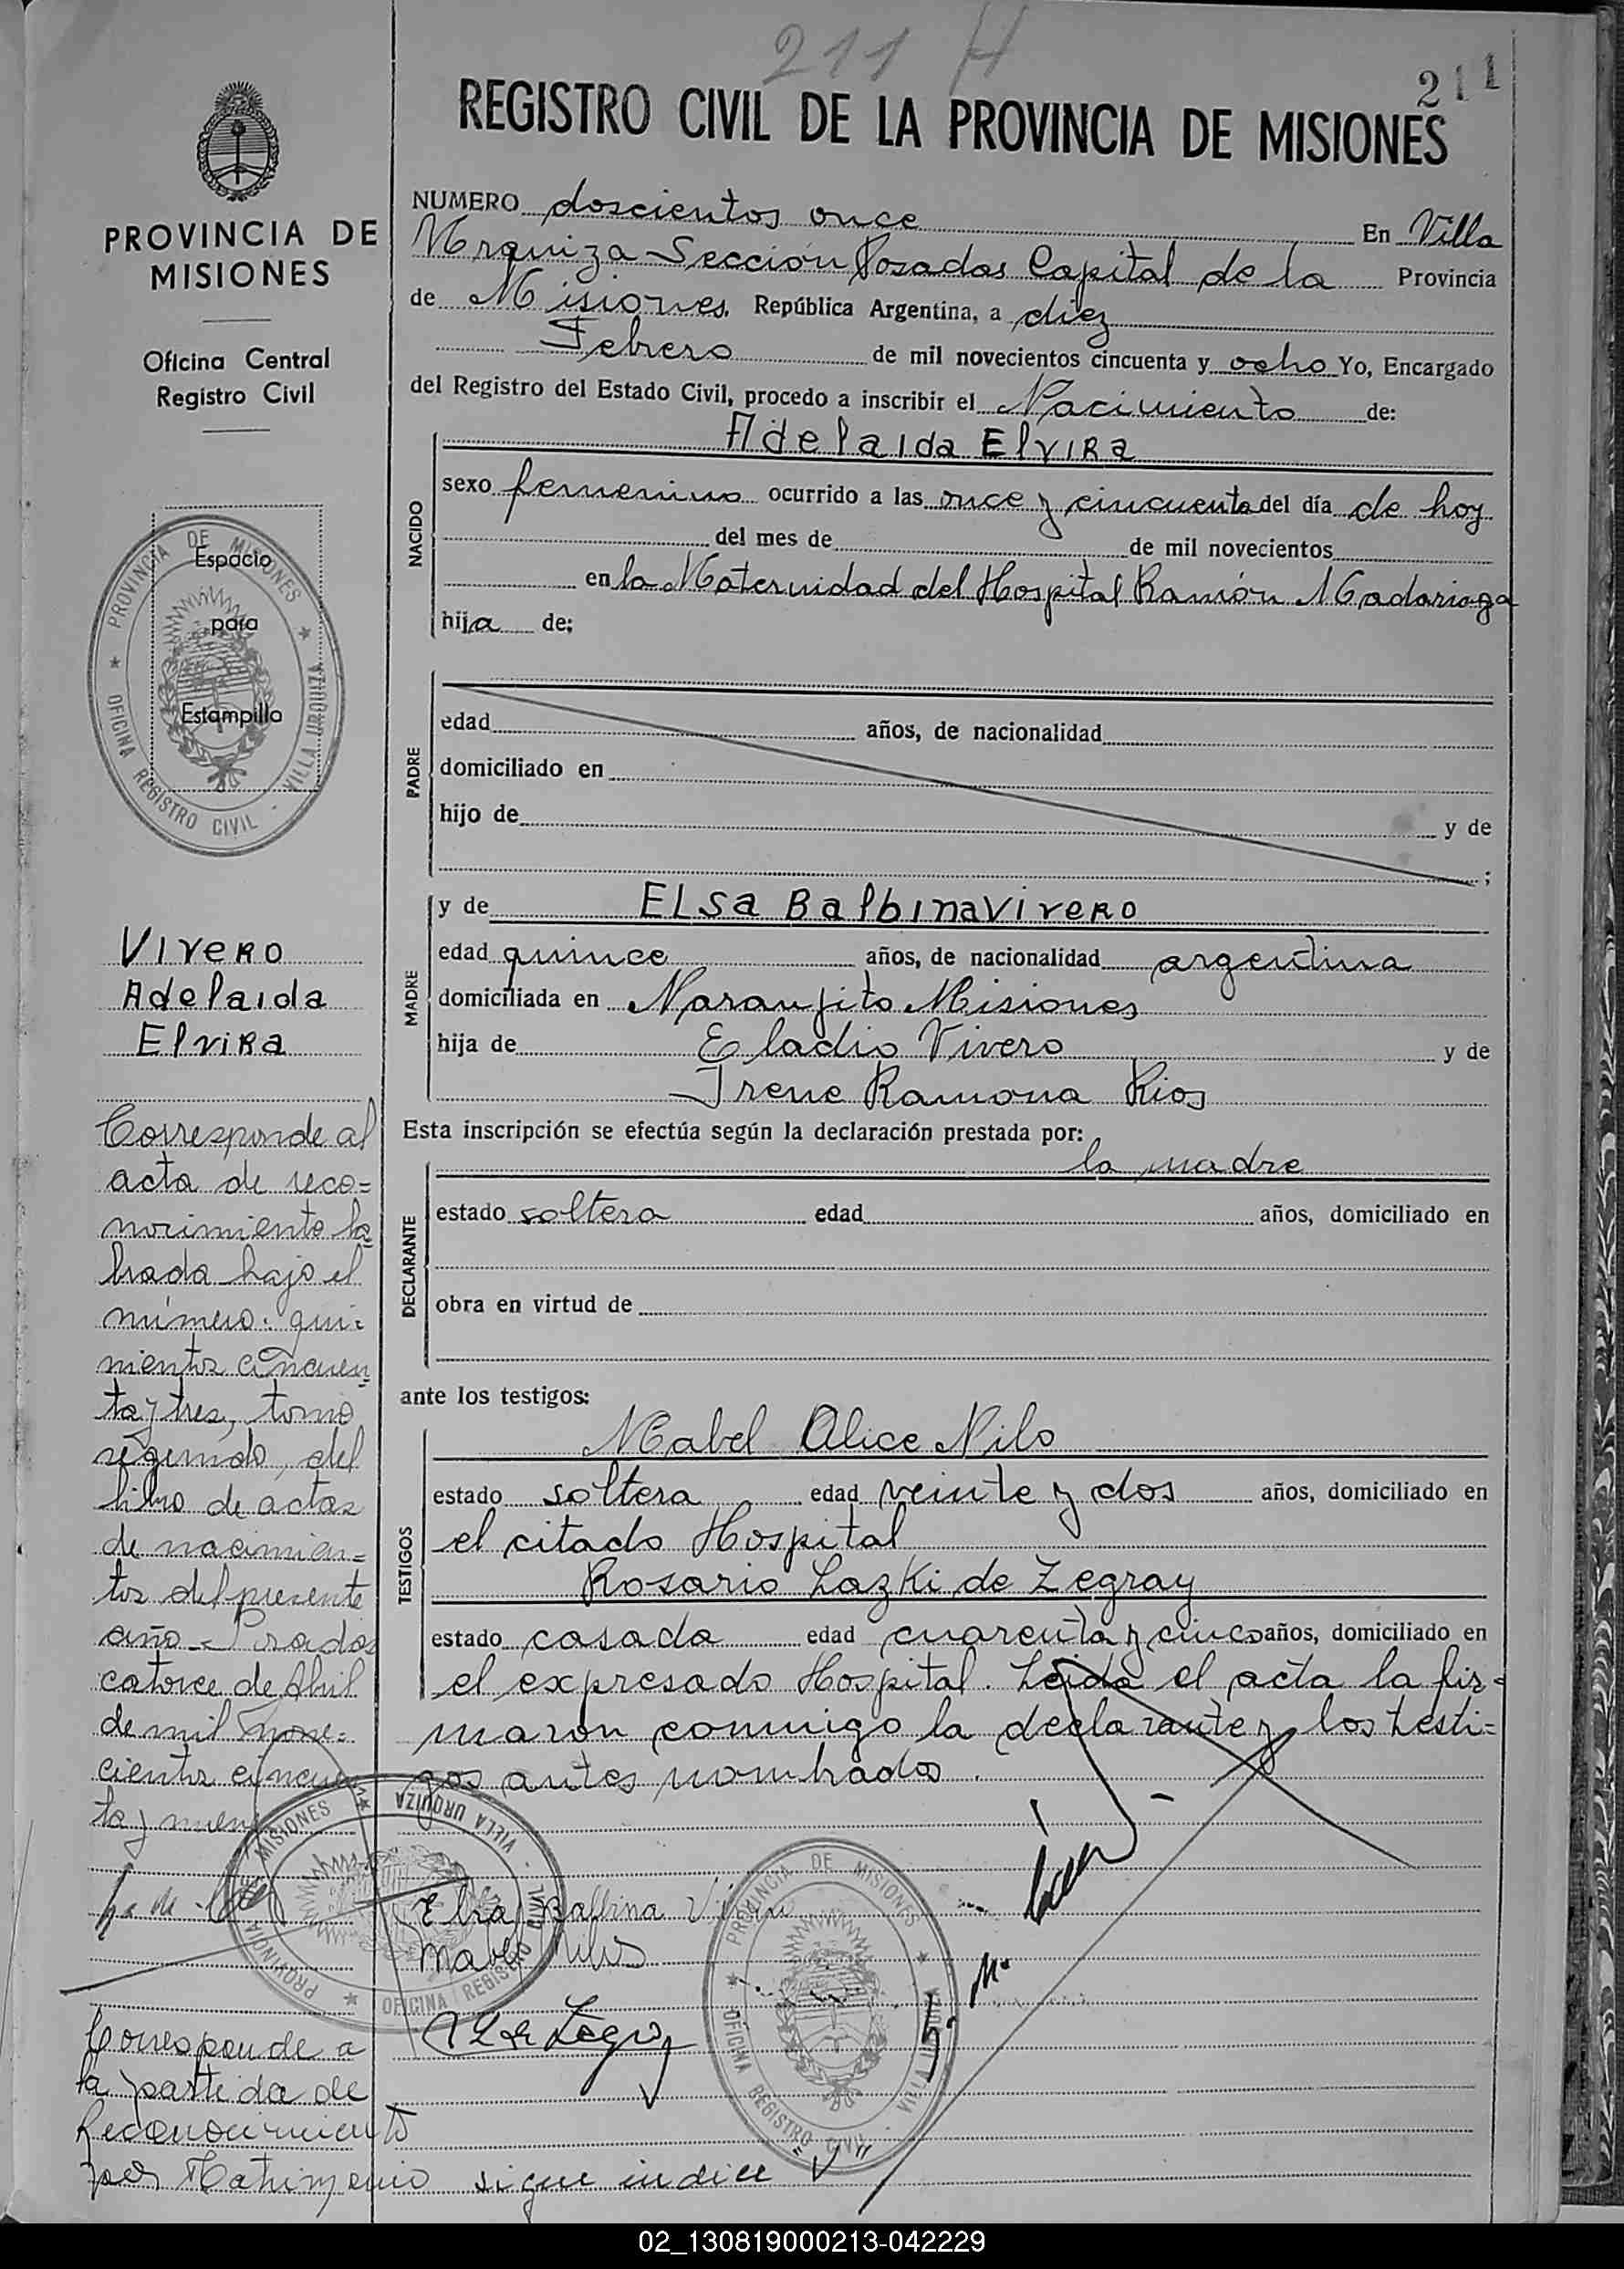 211 H
211
REGISTRO CIVIL DE LA PROVINCIA DE MISIONES
PROVINCIA DE
MISIONES
Oficina Central
Registro Civil
PROVINCIA DE MISIONES
Espacio
para
Estampilla
OFICINA REGISTRO CIVIL - VILLA URQUIZA
Vivero
Adelaida
Elvira
Corresponde al
acta de reco=
nocimiento la=
brada bajo el
número: qui=
nientos cincuen=
ta y tres, tomo
segundo, del
libro de actas
de nacimien=
tos del presente
año - Posadas
catorce de Abril
de mil nove=
cientos cincuen
ta y nueve
Corresponde a
la partida de
Reconocimiento
por Matrimonio sigue indice "V"
NUMERO doscientos once En Villa
Urquiza Sección Posadas Capital de la Provincia
de Misiones, República Argentina, a diez
Febrero de mil novecientos cincuenta y ocho Yo, Encargado
del Registro del Estado Civil, procedo a inscribir el Nacimiento de:
NACIDO
Adelaida Elvira
sexo femenino ocurrido a las once y cincuenta del día de hoy
del mes de de mil novecientos
en la Maternidad del Hospital Ramón Madariaga
hija de:
PADRE
edad años, de nacionalidad
domiciliado en
hijo de y de
;
MADRE
y de Elsa Balbina Vivero
edad quince años, de nacionalidad argentina
domiciliada en Naranjito Misiones
hija de Eladio Vivero y de
Irene Ramona Rios
Esta inscripción se efectúa según la declaración prestada por:
DECLARANTE
la madre
estado soltera edad años, domiciliado en
obra en virtud de
ante los testigos:
TESTIGOS
Mabel Alice Nilo
estado soltera edad veinte y dos años, domiciliado en
el citado Hospital
Rosario Lazki de Zegray
estado casada edad cuarenta y cinco años, domiciliado en
el expresado Hospital. Leida el acta la fir=
maron conmigo la declarante y los testi=
gos antes nombrados.
PROVINCIA MISIONES
VILLA URQUIZA
OFICINA REGISTRO CIVIL
Elsa Balbina Vivero
Mabel Nilo
PROVINCIA DE MISIONES
OFICINA REGISTRO CIVIL - VILLA URQUIZA
02_130819000213-042229